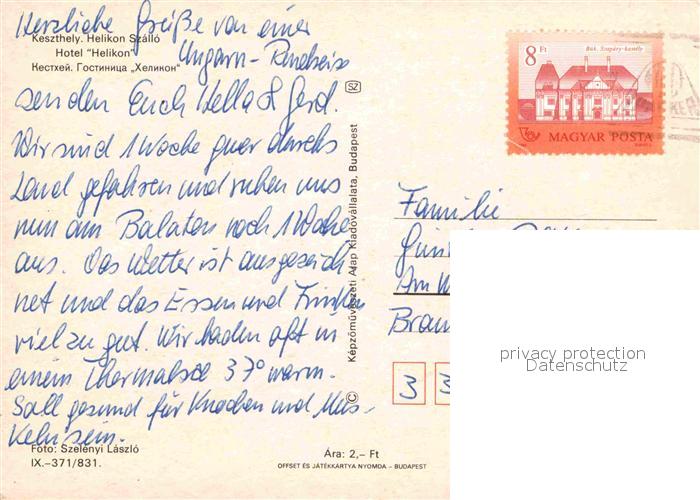 Herzliche Grüße von einer
Ungarn-Rundreise
Keszthely. Helikon Szálló
Hotel "Helikon"
Кестхей. Гостиница „Хеликон"
senden Euch Hella & Gerd.
Wir sind 1 Woche quer durchs
Land gefahren und ruhen uns
nun am Balaton noch 1 Woche
aus. Das Wetter ist ausgezeich
net und das Essen und Trinken
viel zu gut. Wir baden oft in
einem Thermalsee 37° warm.
Soll gesund für Knochen und Mus-
keln sein.
Fotó: Szelényi László
IX.–371/831.
Ára: 2,– Ft
OFFSET ÉS JÁTÉKKÁRTYA NYOMDA – BUDAPEST
© Képzőművészeti Alap Kiadóvállalata, Budapest
SZ
8 Ft
Bük. Szapáry-kastély
MAGYAR POSTA
Familie
Am
Brau
3 3
privacy protection
Datenschutz